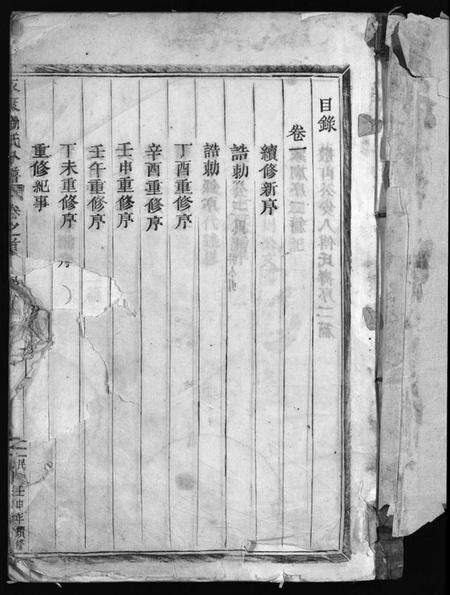 目錄
卷一
續修新序
誥勅
誥勅
丁酉重修序
辛酉重修序
壬申重修序
壬午重修序
丁未重修序
重修紀事
氏
譜
卷之首
民
壬申年續修